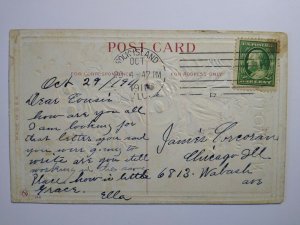 POST CARD
ROCK ISLAND
OCT
ILL.
FOR CORRESPONDENCE
FOR ADDRESS ONLY
Oct 29/1911
Dear Cousin
how are you all
I am looking for
that letter you said
you were going to
write are you still
working at the same
Place how is little
Grace.
Ella
James Corcoran
Chicago Ill
6813. Wabash
ave